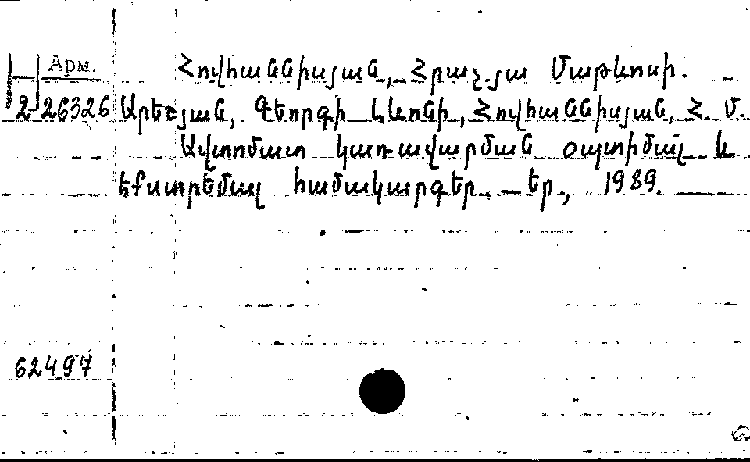 Арм.
Հովհաննիսյան, Հրաչյա Մաթևոսի.
2 26326 Արեշյան, Գևորգի Լևոնի, Հովհաննիսյան, Հ. Մ.
Ավտոմատ կառավարման օպտիմալ և
էքստրեմալ համակարգեր. – Եր., 1989.
62497